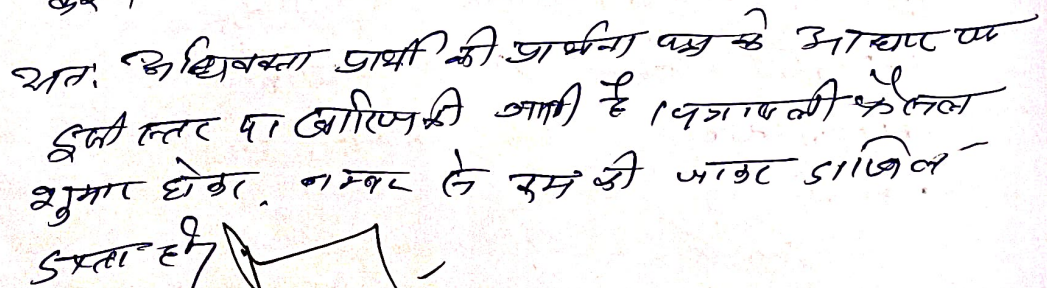 अतः अधिवक्ता प्रार्थी की प्रार्थना पत्र के आधार पर
इसी स्तर पर खारिज की जाती है । पत्रावली फैसल
शुमार होकर, नम्बर से कम की जाकर दाखिल
दफ्तर हो